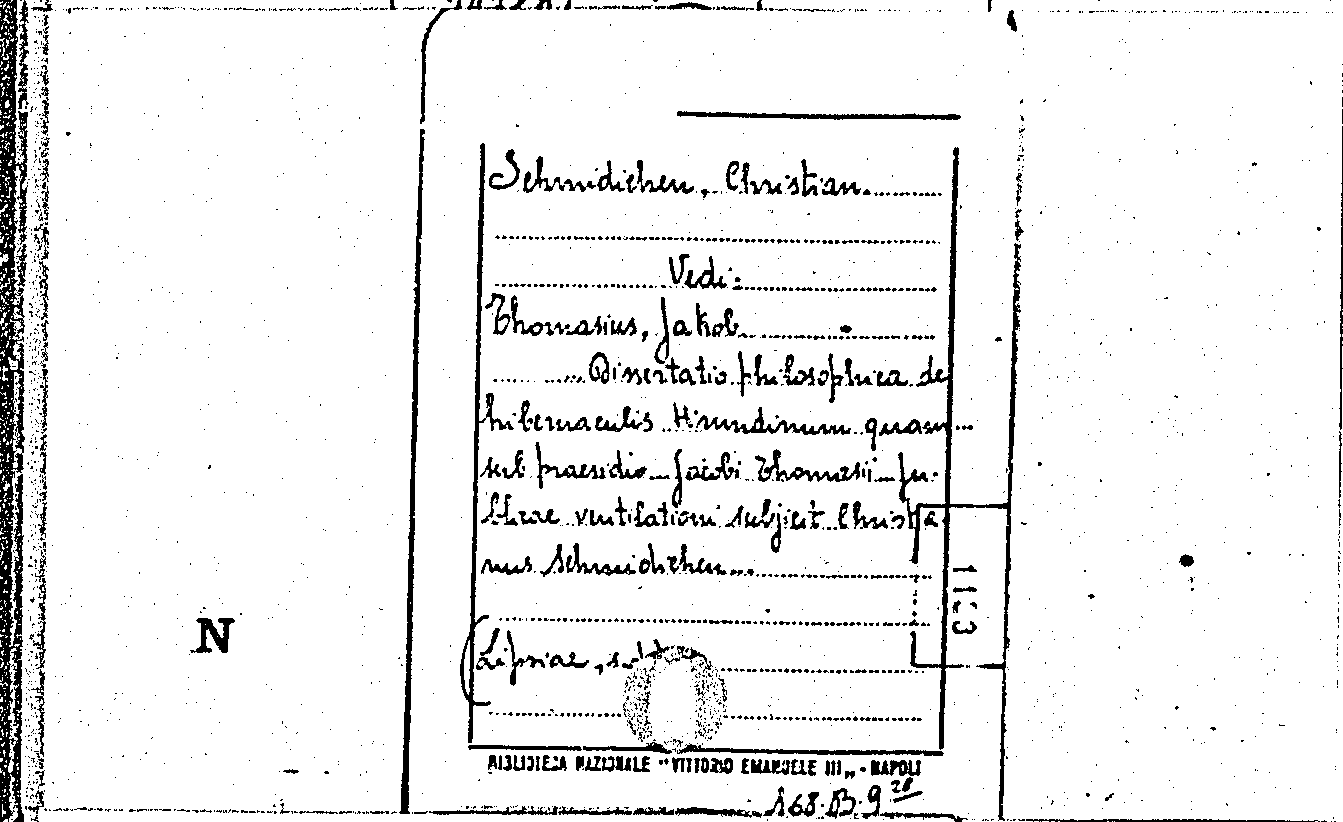 Schmidichen, Christian.
Vedi:
Thomasius, Jakob
Dissertatio philosophica de
hibernaculis Hirundinum quam
sub praesidio Jacobi Thomasii pu-
blicae ventilationi subjicit Christia
nus Schmidichen
Lipsiae,
1103
N
BIBLIOTECA NAZIONALE "VITTORIO EMANUELE III„ - NAPOLI
168.B.9 20